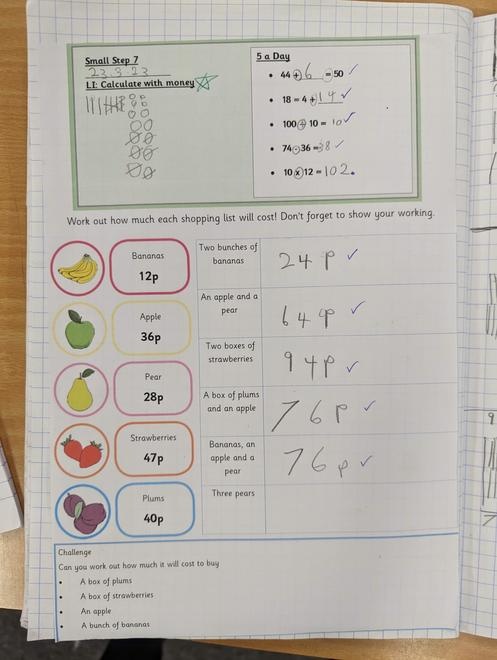 Small Step 7
23.3.23
LI: Calculate with money
5 a Day
44 + 6 = 50
18 = 4 + 14
100 ÷ 10 = 10
74 - 36 = 38
10 x 12 = 102.
Work out how much each shopping list will cost! Don't forget to show your working.
Bananas
12p
Two bunches of
bananas
24p
Apple
36p
An apple and a
pear
64p
Pear
28p
Two boxes of
strawberries
94p
Strawberries
47p
A box of plums
and an apple
76p
Bananas, an
apple and a
pear
76p
Plums
40p
Three pears
Challenge
Can you work out how much it will cost to buy
• A box of plums
• A box of strawberries
• An apple
• A bunch of bananas